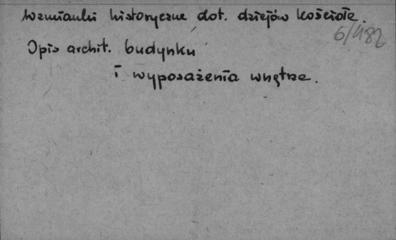 Wzmianki historyczne dot. dziejów kościoła.
6/482
Opis archit. budynku
i wyposażenia wnętrza.